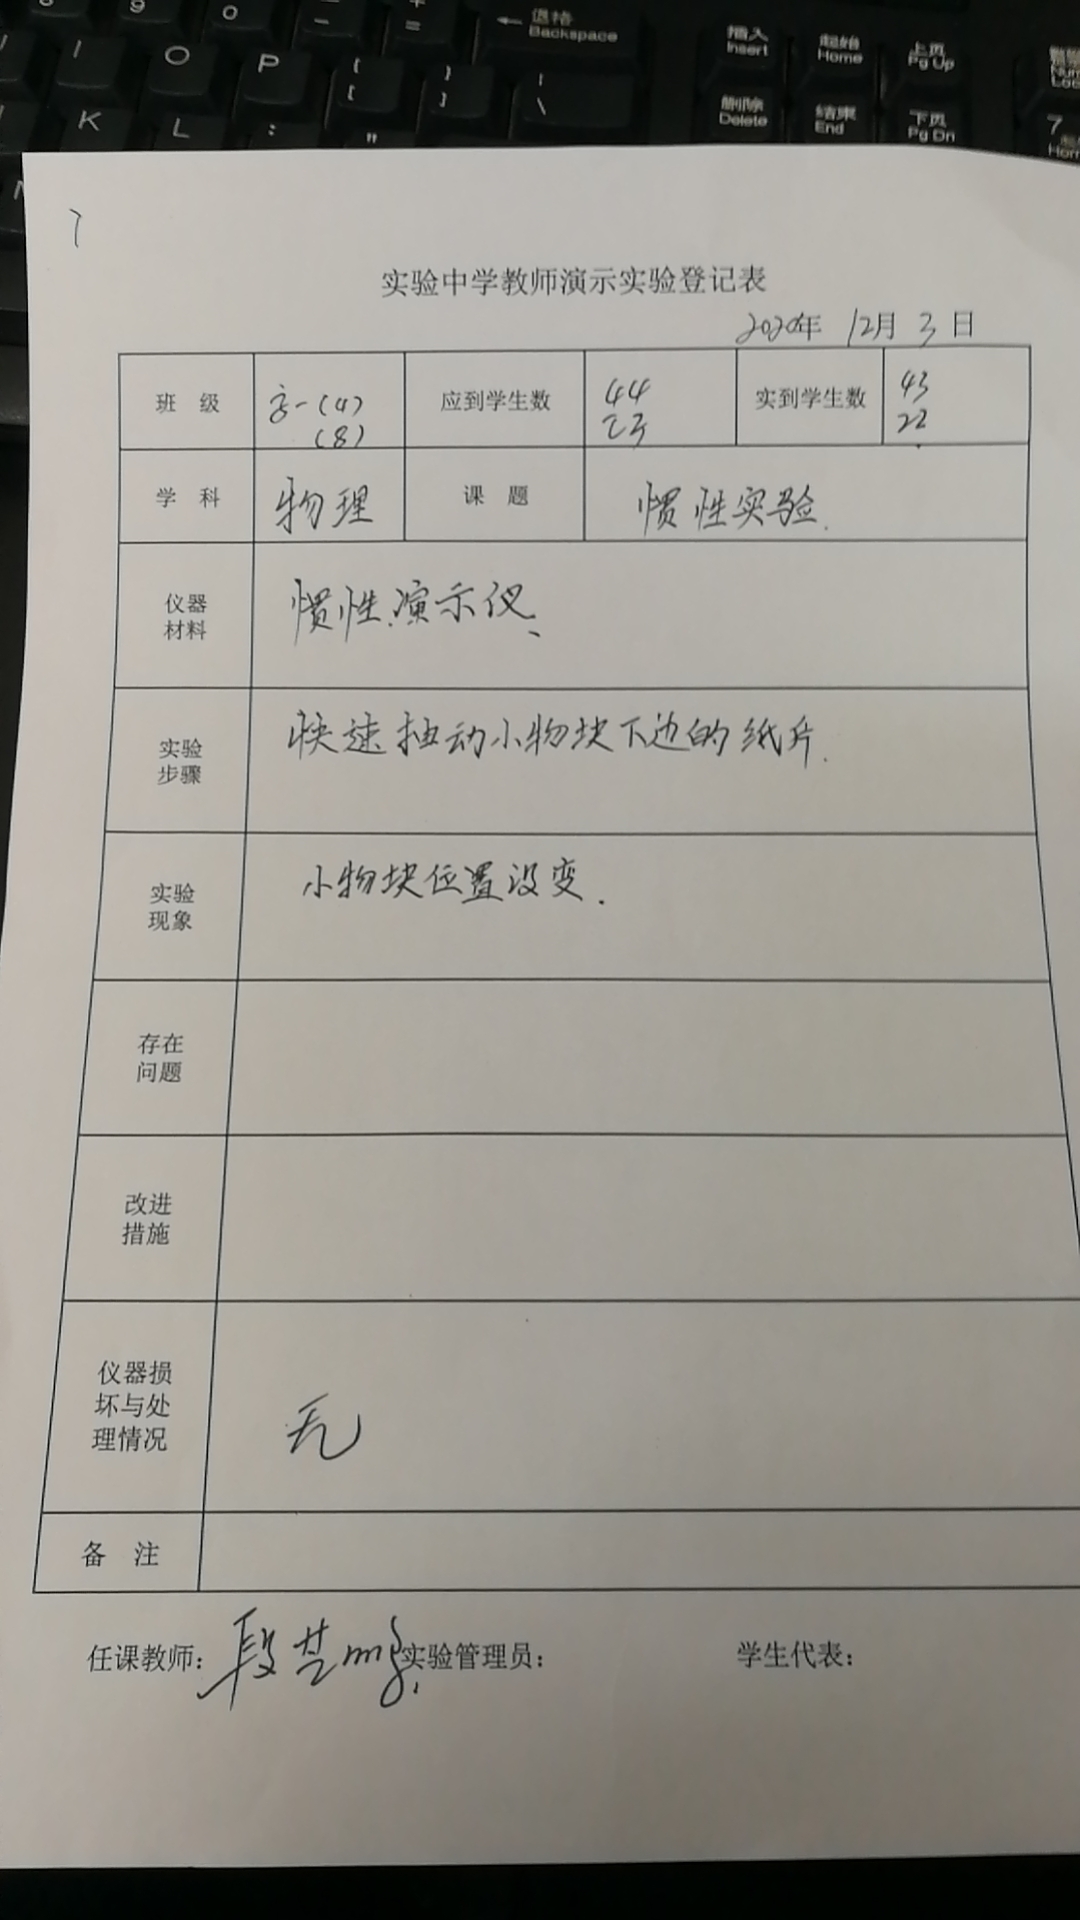 9 0
退格
Backspace
插入
Insert
起始
Home
上页
Pg Up
I O P [ ]
\
删除
Delete
结束
End
下页
Pg Dn
7
K L : "
实验中学教师演示实验登记表
2020年 12月 3 日
班 级 高一(4) 应到学生数 44 实到学生数 43
(8) 22
学 科 物理 课 题 惯性实验.
仪器
材料
惯性演示仪、
实验
步骤
快速抽动小物块下边的纸片.
实验
现象
小物块位置没变.
存在
问题
改进
措施
仪器损
坏与处
理情况
无
备 注
任课教师: 段 实验管理员: 学生代表: